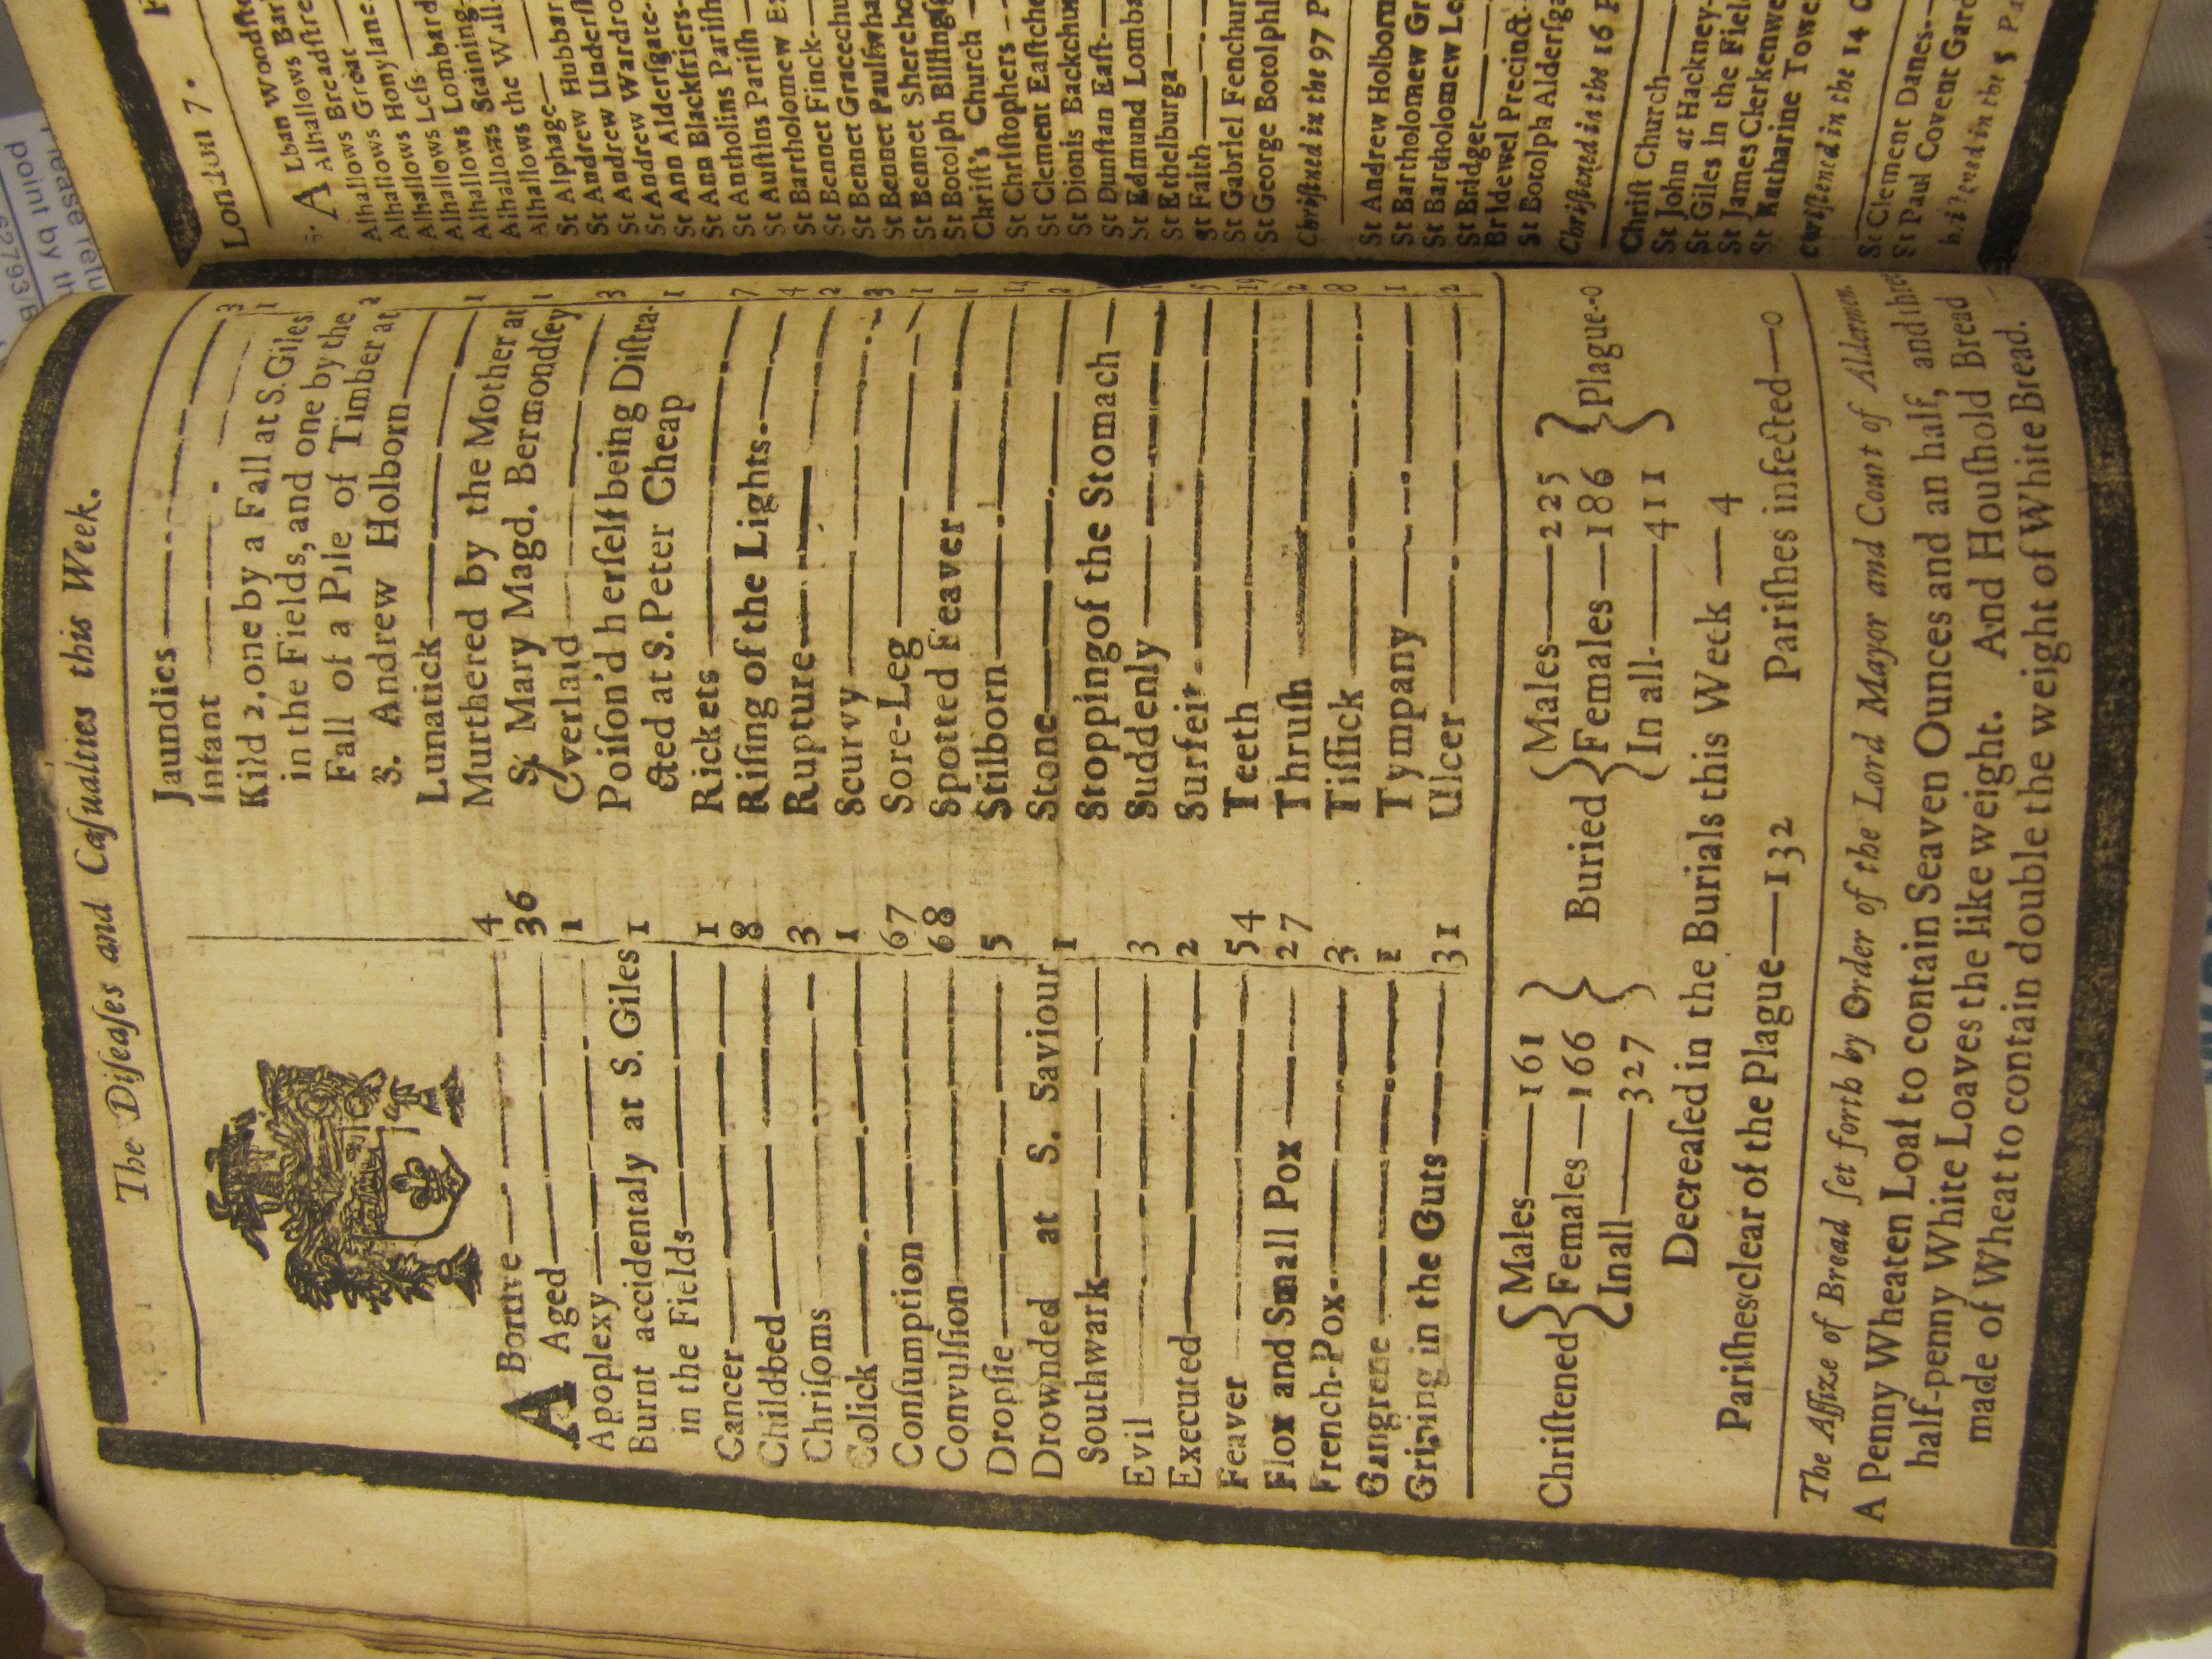 The Diſeaſes and Caſualties this Week.
ABortive 4
Aged 36
Apoplexy 1
Burnt accidentaly at S. Giles
in the Fields 1
Cancer 1
Childbed 8
Chriſoms 3
Colick 1
Conſumption 67
Convulſion 68
Dropſie 5
Drownded at S. Saviour
Southwark 1
Evil 3
Executed 2
Feaver 54
Flox and Small Pox 27
French-Pox 3
Gangrene 1
Griping in the Guts 31
Jaundies 3
Infant 1
Kild 2, one by a Fall at S. Giles
in the Fields, and one by the
Fall of a Pile of Timber at
S. Andrew Holborn 2
Lunatick 1
Murthered by the Mother at
S. Mary Magd. Bermondſey 1
Overlaid 3
Poiſon'd herſelf being Diſtra-
cted at S. Peter Cheap 1
Rickets 7
Riſing of the Lights 4
Rupture 2
Scurvy 3
Sore-Leg 1
Spotted Feaver 1
Stilborn 14
Stone 2
Stopping of the Stomach
Suddenly
Surfeit 5
Teeth 19
Thruſh 2
Tiſſick 8
Tympany 1
Ulcer 2
Chriſtened { Males—161 Females—166 In all—327 } Buried { Males—225 Females—186 In all—411 } Plague—0
Decreaſed in the Burials this Week — 4
Pariſhes clear of the Plague—132 Pariſhes infected—0
The Aſſize of Bread ſet forth by Order of the Lord Mayor and Court of Aldermen,
A Penny Wheaten Loaf to contain Seaven Ounces and an half, and three
half-penny White Loaves the like weight. And Houſhold Bread
made of Wheat to contain double the weight of White Bread.
London 7.
ALban Woodſtre
Alhallows Bar
Alhallows Breadſtre
Alhallows Great
Alhallows Honylane
Alhallows Leſs
Alhallows Lombard
Alhallows Staining
Alhallows the Wall
St Alphage
St Andrew Hubbar
St Andrew Underſh
St Andrew Wardro
St Ann Alderſgate
St Ann Blackfriers
St Antholins Pariſh
St Auſtins Pariſh
St Bartholomew Ex
St Bennet Finck
St Bennet Gracechu
St Bennet Paulſwha
St Bennet Sherehog
St Botolph Billingſg
Chriſt's Church
St Chriſtophers
St Clement Eaſtche
St Dionis Backchu
St Dunſtan Eaſt
St Edmund Lomba
St Ethelburga
St Faith
St Gabriel Fenchur
St George Botolphl
Chriſtned in the 97 P
St Andrew Holborn
St Bartholomew Gr
St Bartholomew Le
St Bridget
Bridewel Precinct
St Botolph Alderſga
Chriſtened in the 16 P
Chriſt Church
St John at Hackney
St Giles in the Fiel
St James Clerkenwe
St Katharine Towe
Chriſtened in the 14 O
St Clement Danes
St Paul Covent Gard
in the 5 Pa
point by th
62793/B